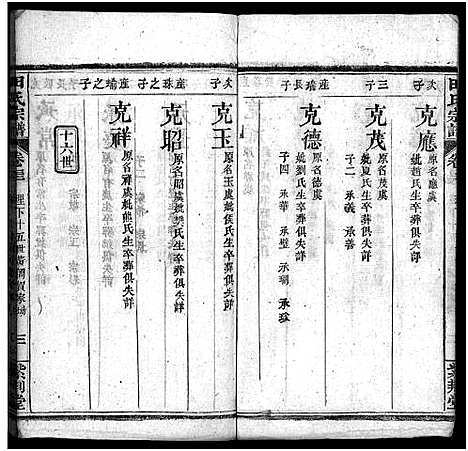 田氏宗譜
次子
克應
原名應虞
妣趙氏生卒葬俱失詳
三子
克茂
原名茂虞
妣 氏生卒葬俱失詳
子二 承義 承善
產瑞長子
克德
原名德虞
妣劉氏生卒葬俱失詳
子四 承華 承璧 承瑚 承珍
次子
克玉
原名玉虞妣侯氏生卒葬俱失詳
產珠之子
克昭
原名昭虞妣樊氏生卒葬俱失詳
產璠之子
克祥
原名祥虞妣熊氏生卒葬俱失詳
十六世
田氏宗譜
卷三
三
紫荊堂